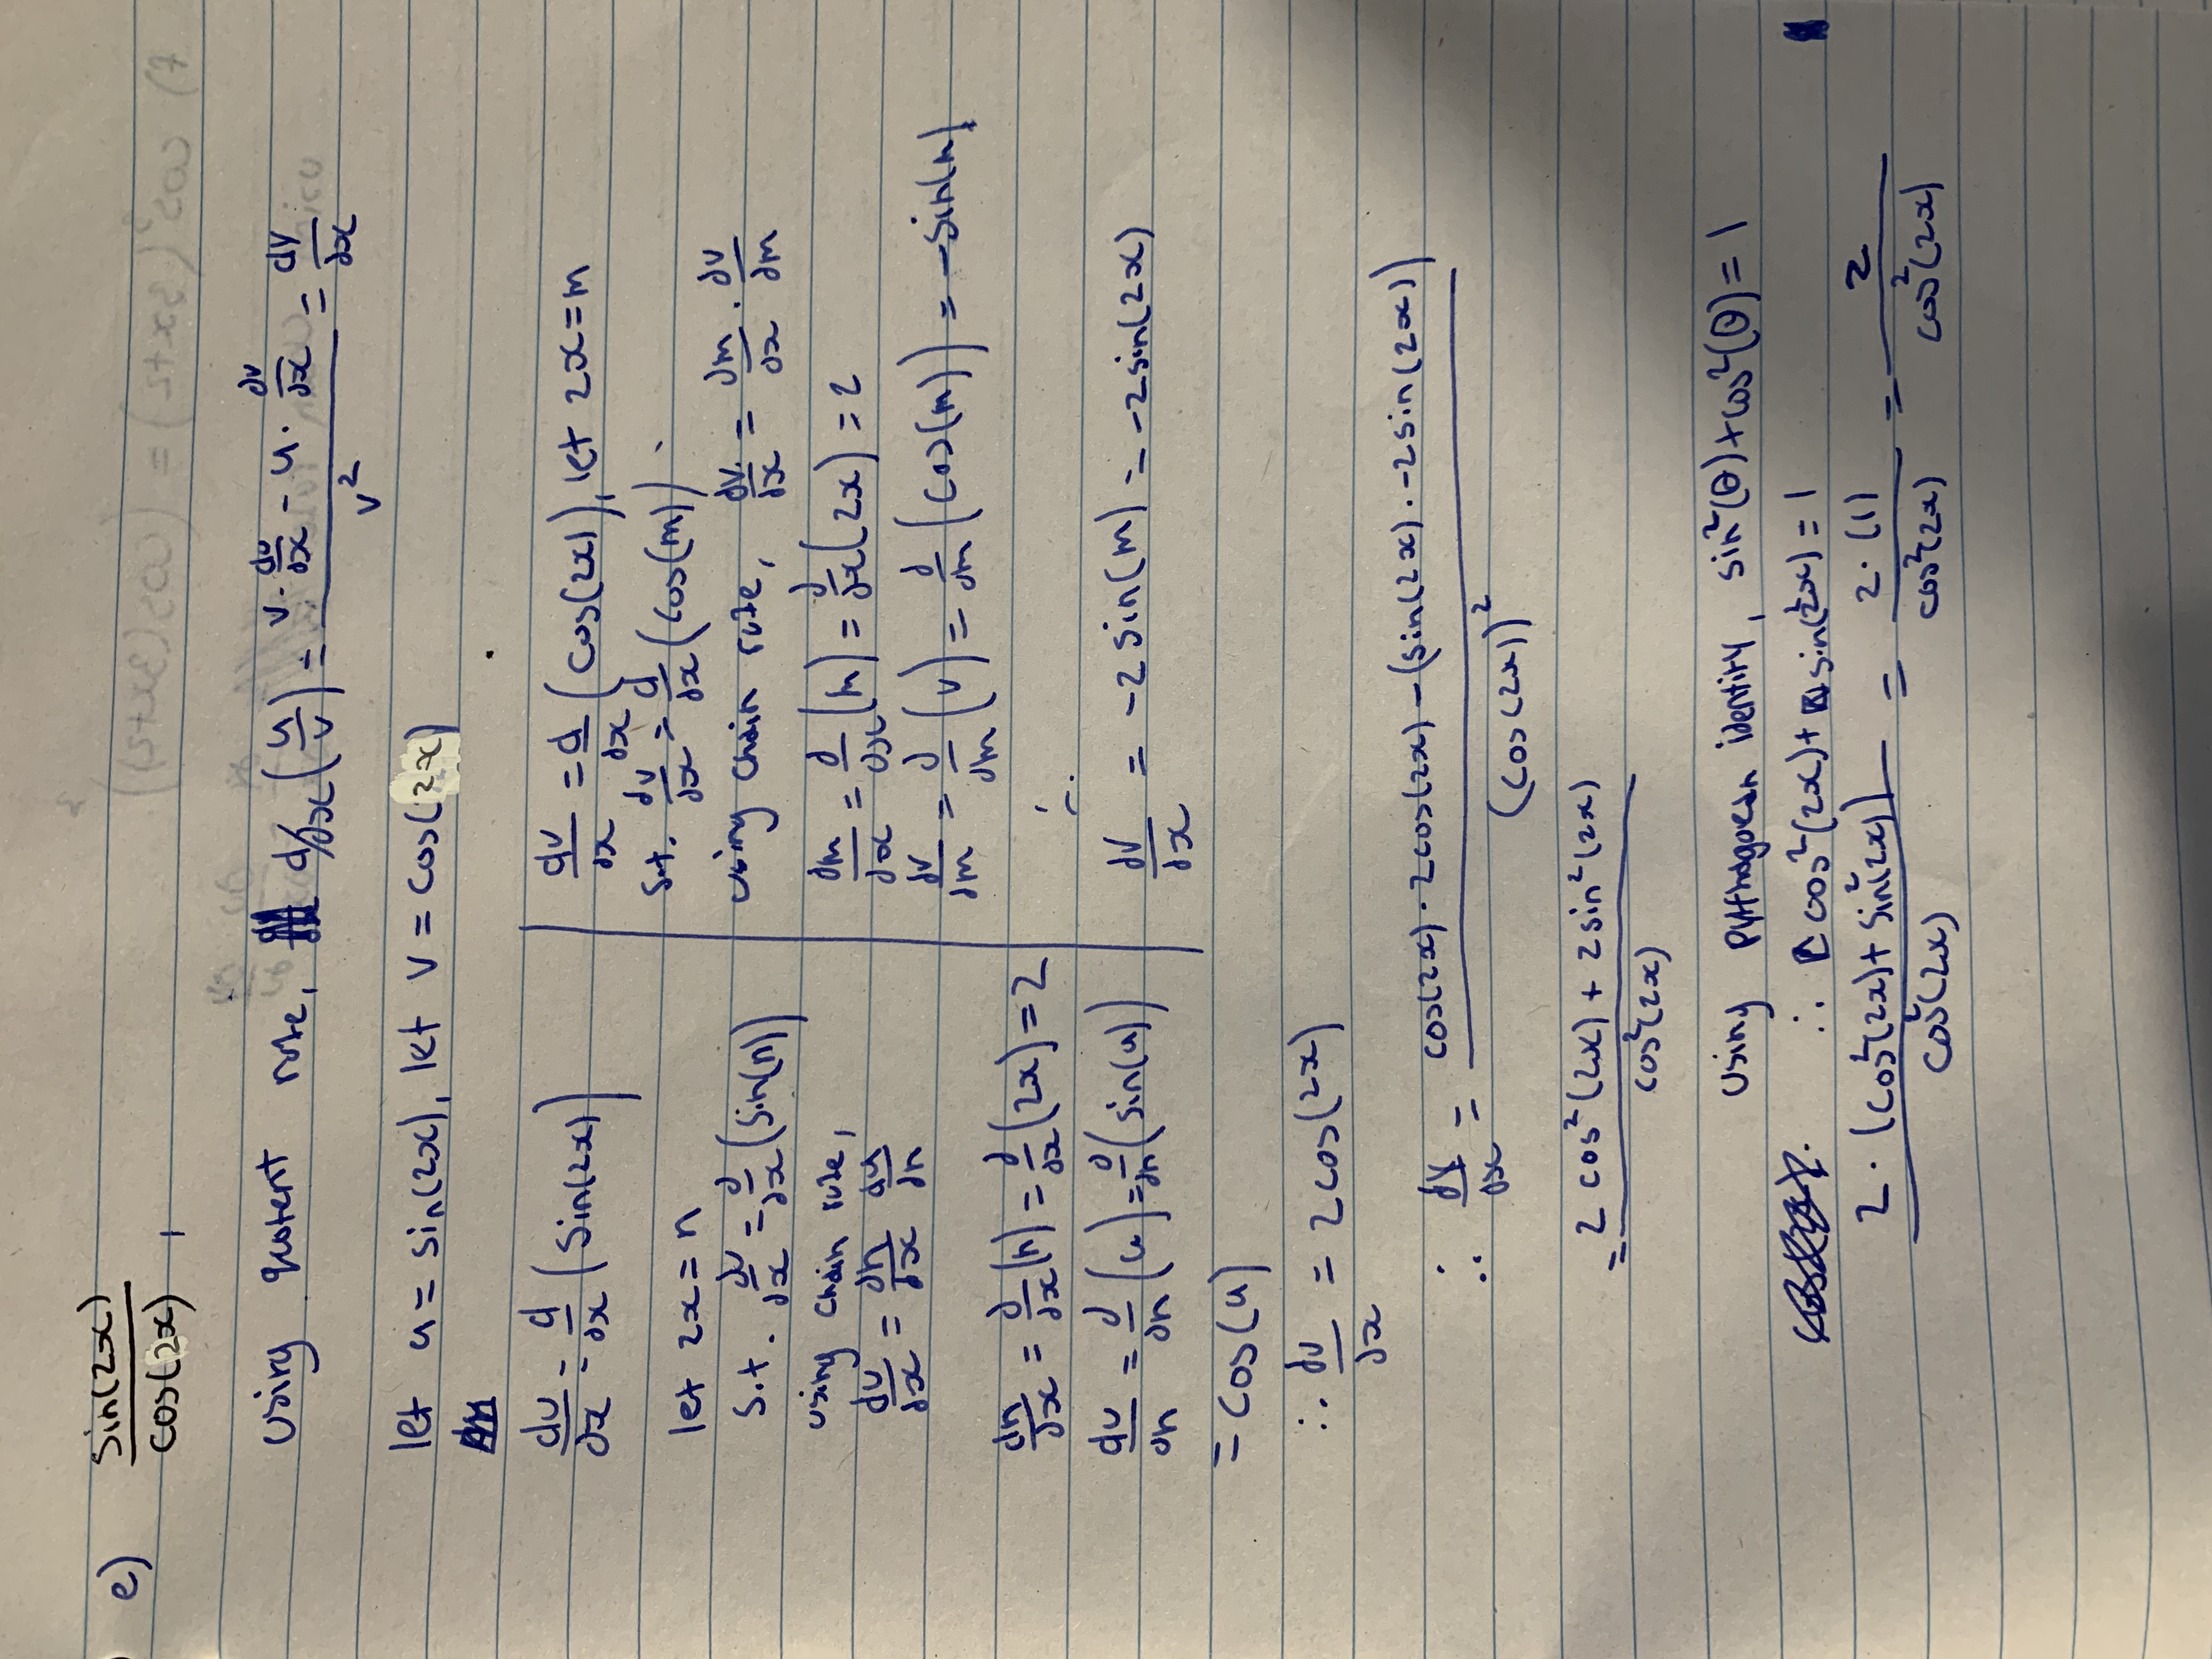 e) sin(2x)/cos(2x) ,
using quotent rule, d/dx (u/v) = (v · du/dx - u · dv/dx)/v² = dy/dx
let u = sin(2x), let v = cos(2x)
du/dx = d/dx (sin(2x))
let 2x = n
s.t. du/dx = d/dx (sin(n))
using chain rule,
du/dx = dn/dx du/dn
dn/dx = d/dx (n) = d/dx (2x) = 2
du/dn = d/dn (u) = d/dn (sin(u))
= cos(u)
∴ du/dx = 2cos(2x)
dv/dx = d/dx (cos(2x)), let 2x = m
s.t. dv/dx = d/dx (cos(m))
using chain rule, dv/dx = dm/dx · dv/dm
dm/dx = d/dx (m) = d/dx (2x) = 2
dv/dm = d/dm (v) = d/dm (cos(m)) = -sin(m)
∴
dv/dx = -2sin(m) = -2sin(2x)
∴ dy/dx = (cos(2x) · 2cos(2x) - (sin(2x) · -2sin(2x)))/(cos(2x))²
= (2cos²(2x) + 2sin²(2x))/cos²(2x)
Using pythagorean identity, sin²(θ) + cos²(θ) = 1
∴ cos²(2x) + sin²(2x) = 1
2 · (cos²(2x) + sin²(2x))/cos²(2x) = 2 · (1)/cos²(2x) = 2/cos²(2x)